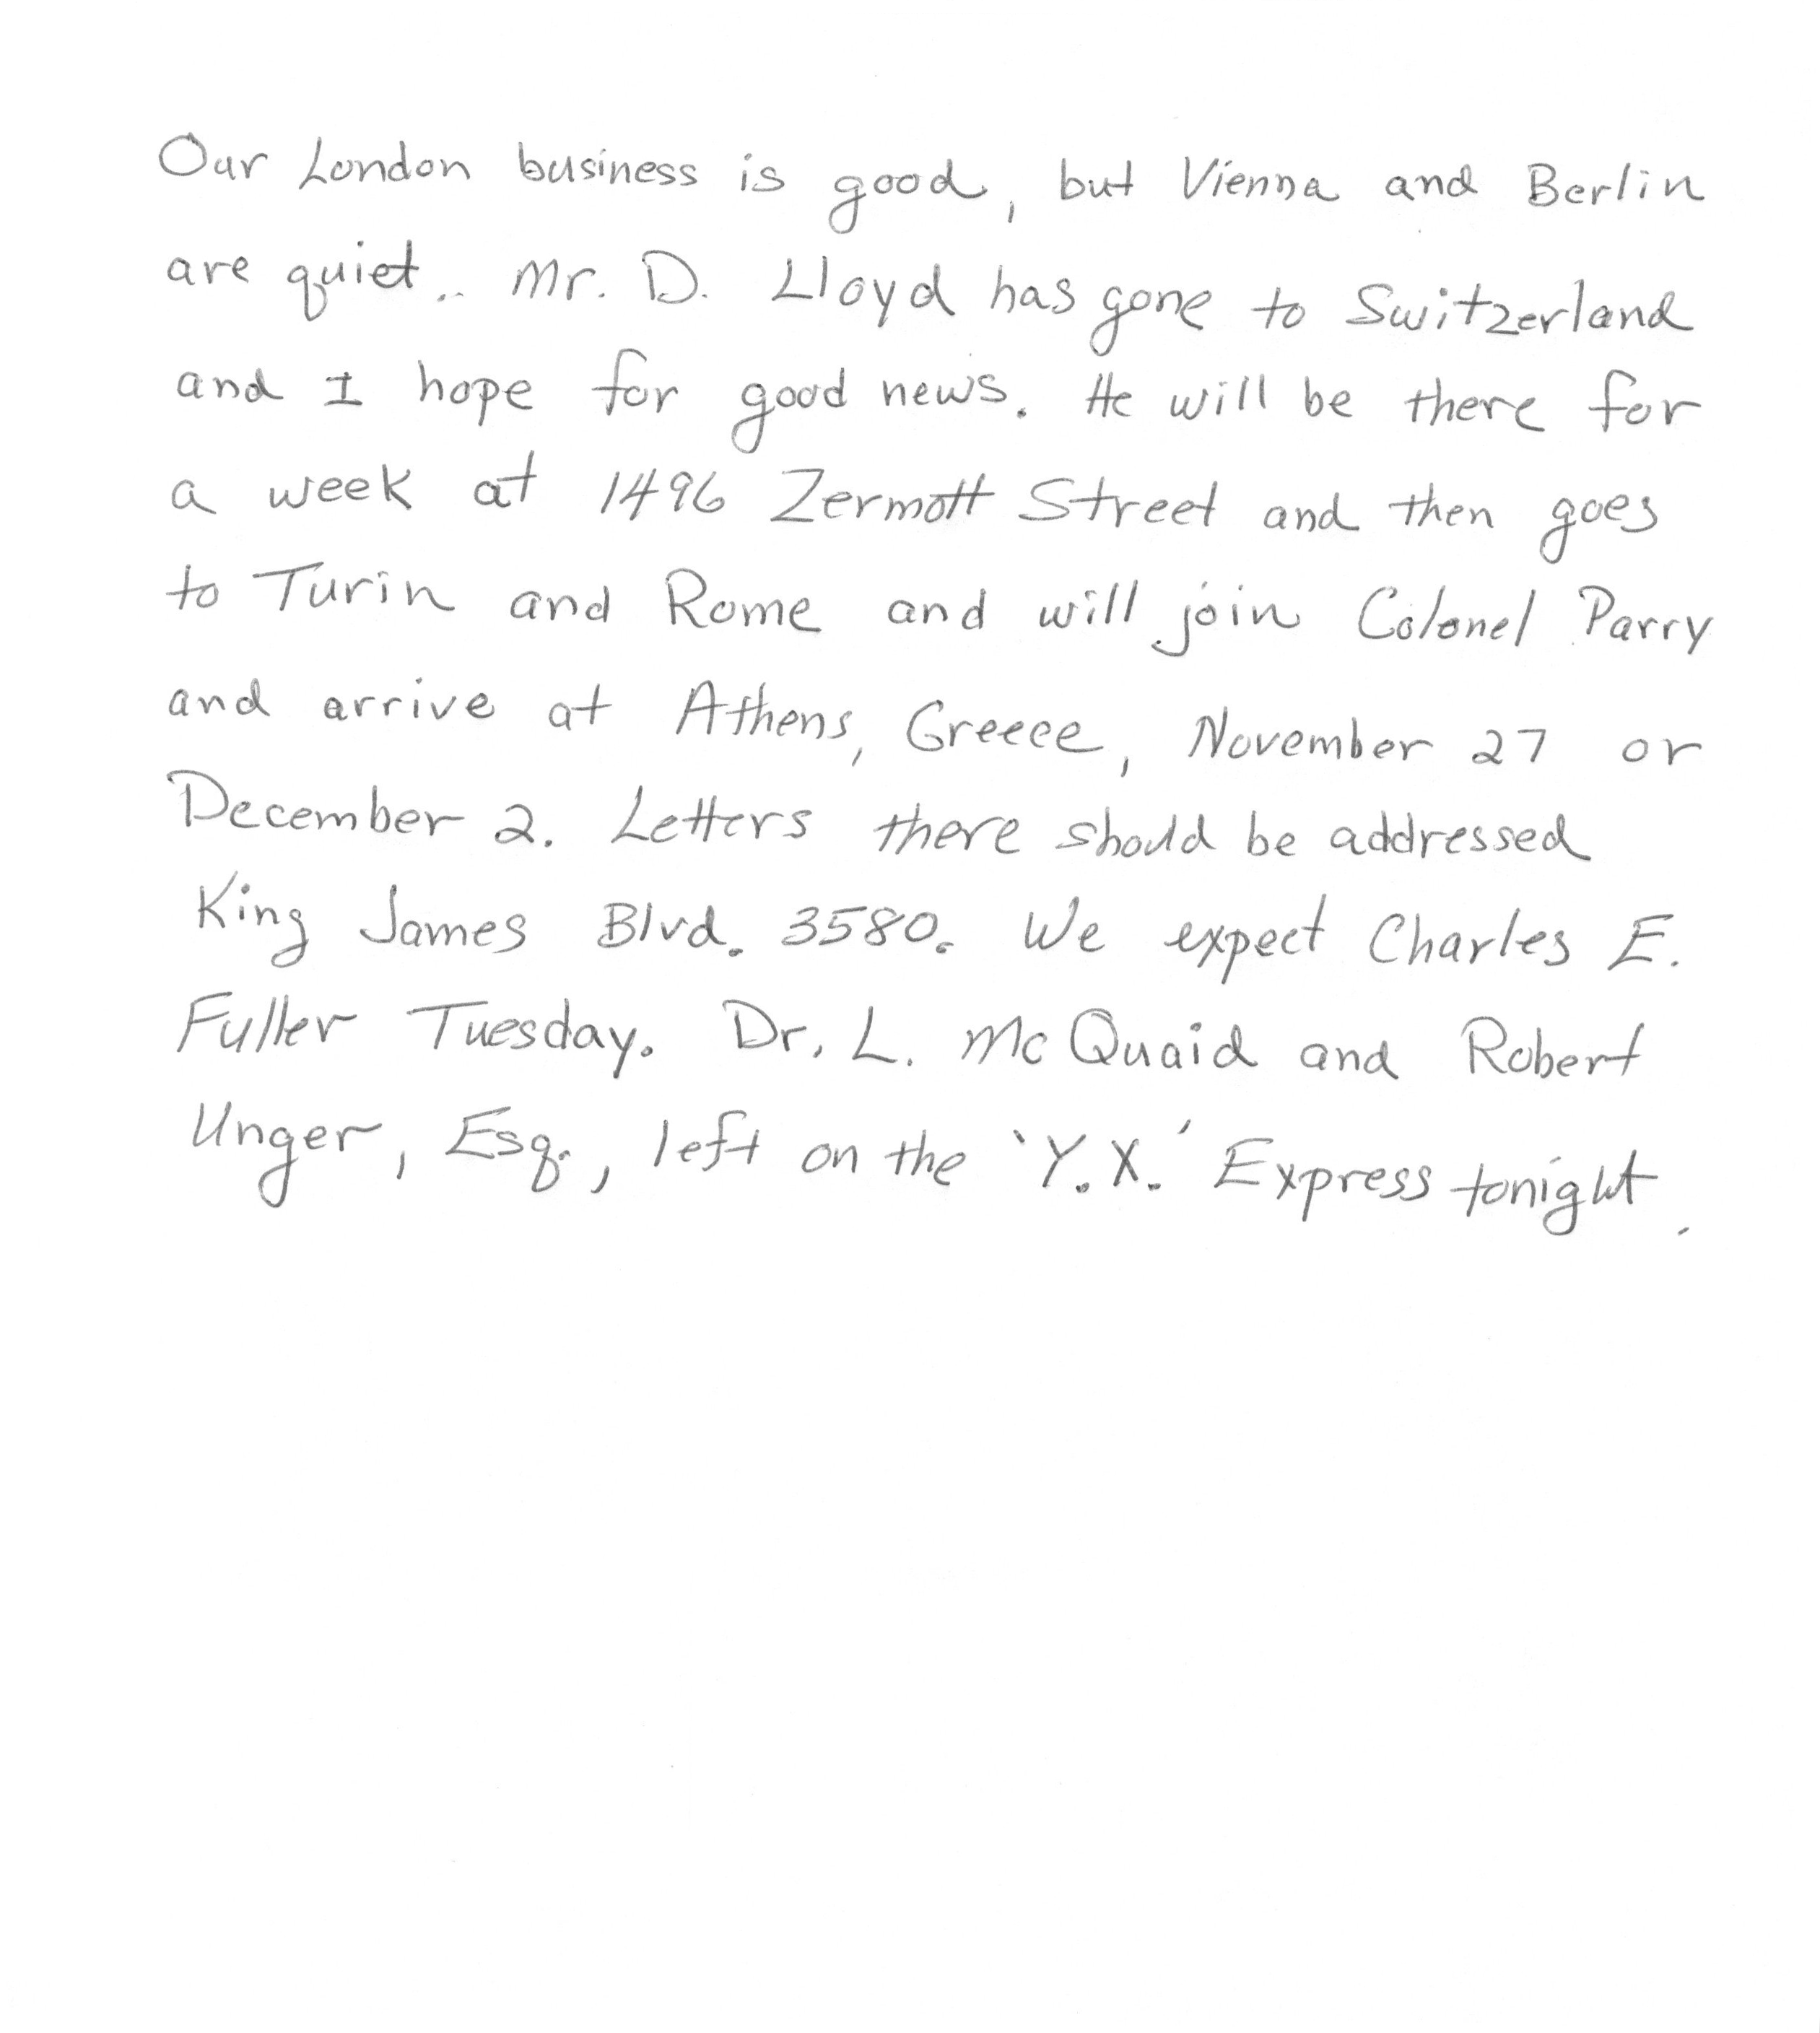 Our London business is good, but Vienna and Berlin
are quiet.. Mr. D. Lloyd has gone to Switzerland
and I hope for good news. He will be there for
a week at 1496 Zermott Street and then goes
to Turin and Rome and will join Colonel Parry
and arrive at Athens, Greece, November 27 or
December 2. Letters there should be addressed
King James Blvd. 3580. We expect Charles E.
Fuller Tuesday. Dr. L. McQuaid and Robert
Unger, Esq., left on the 'Y.X.' Express tonight.